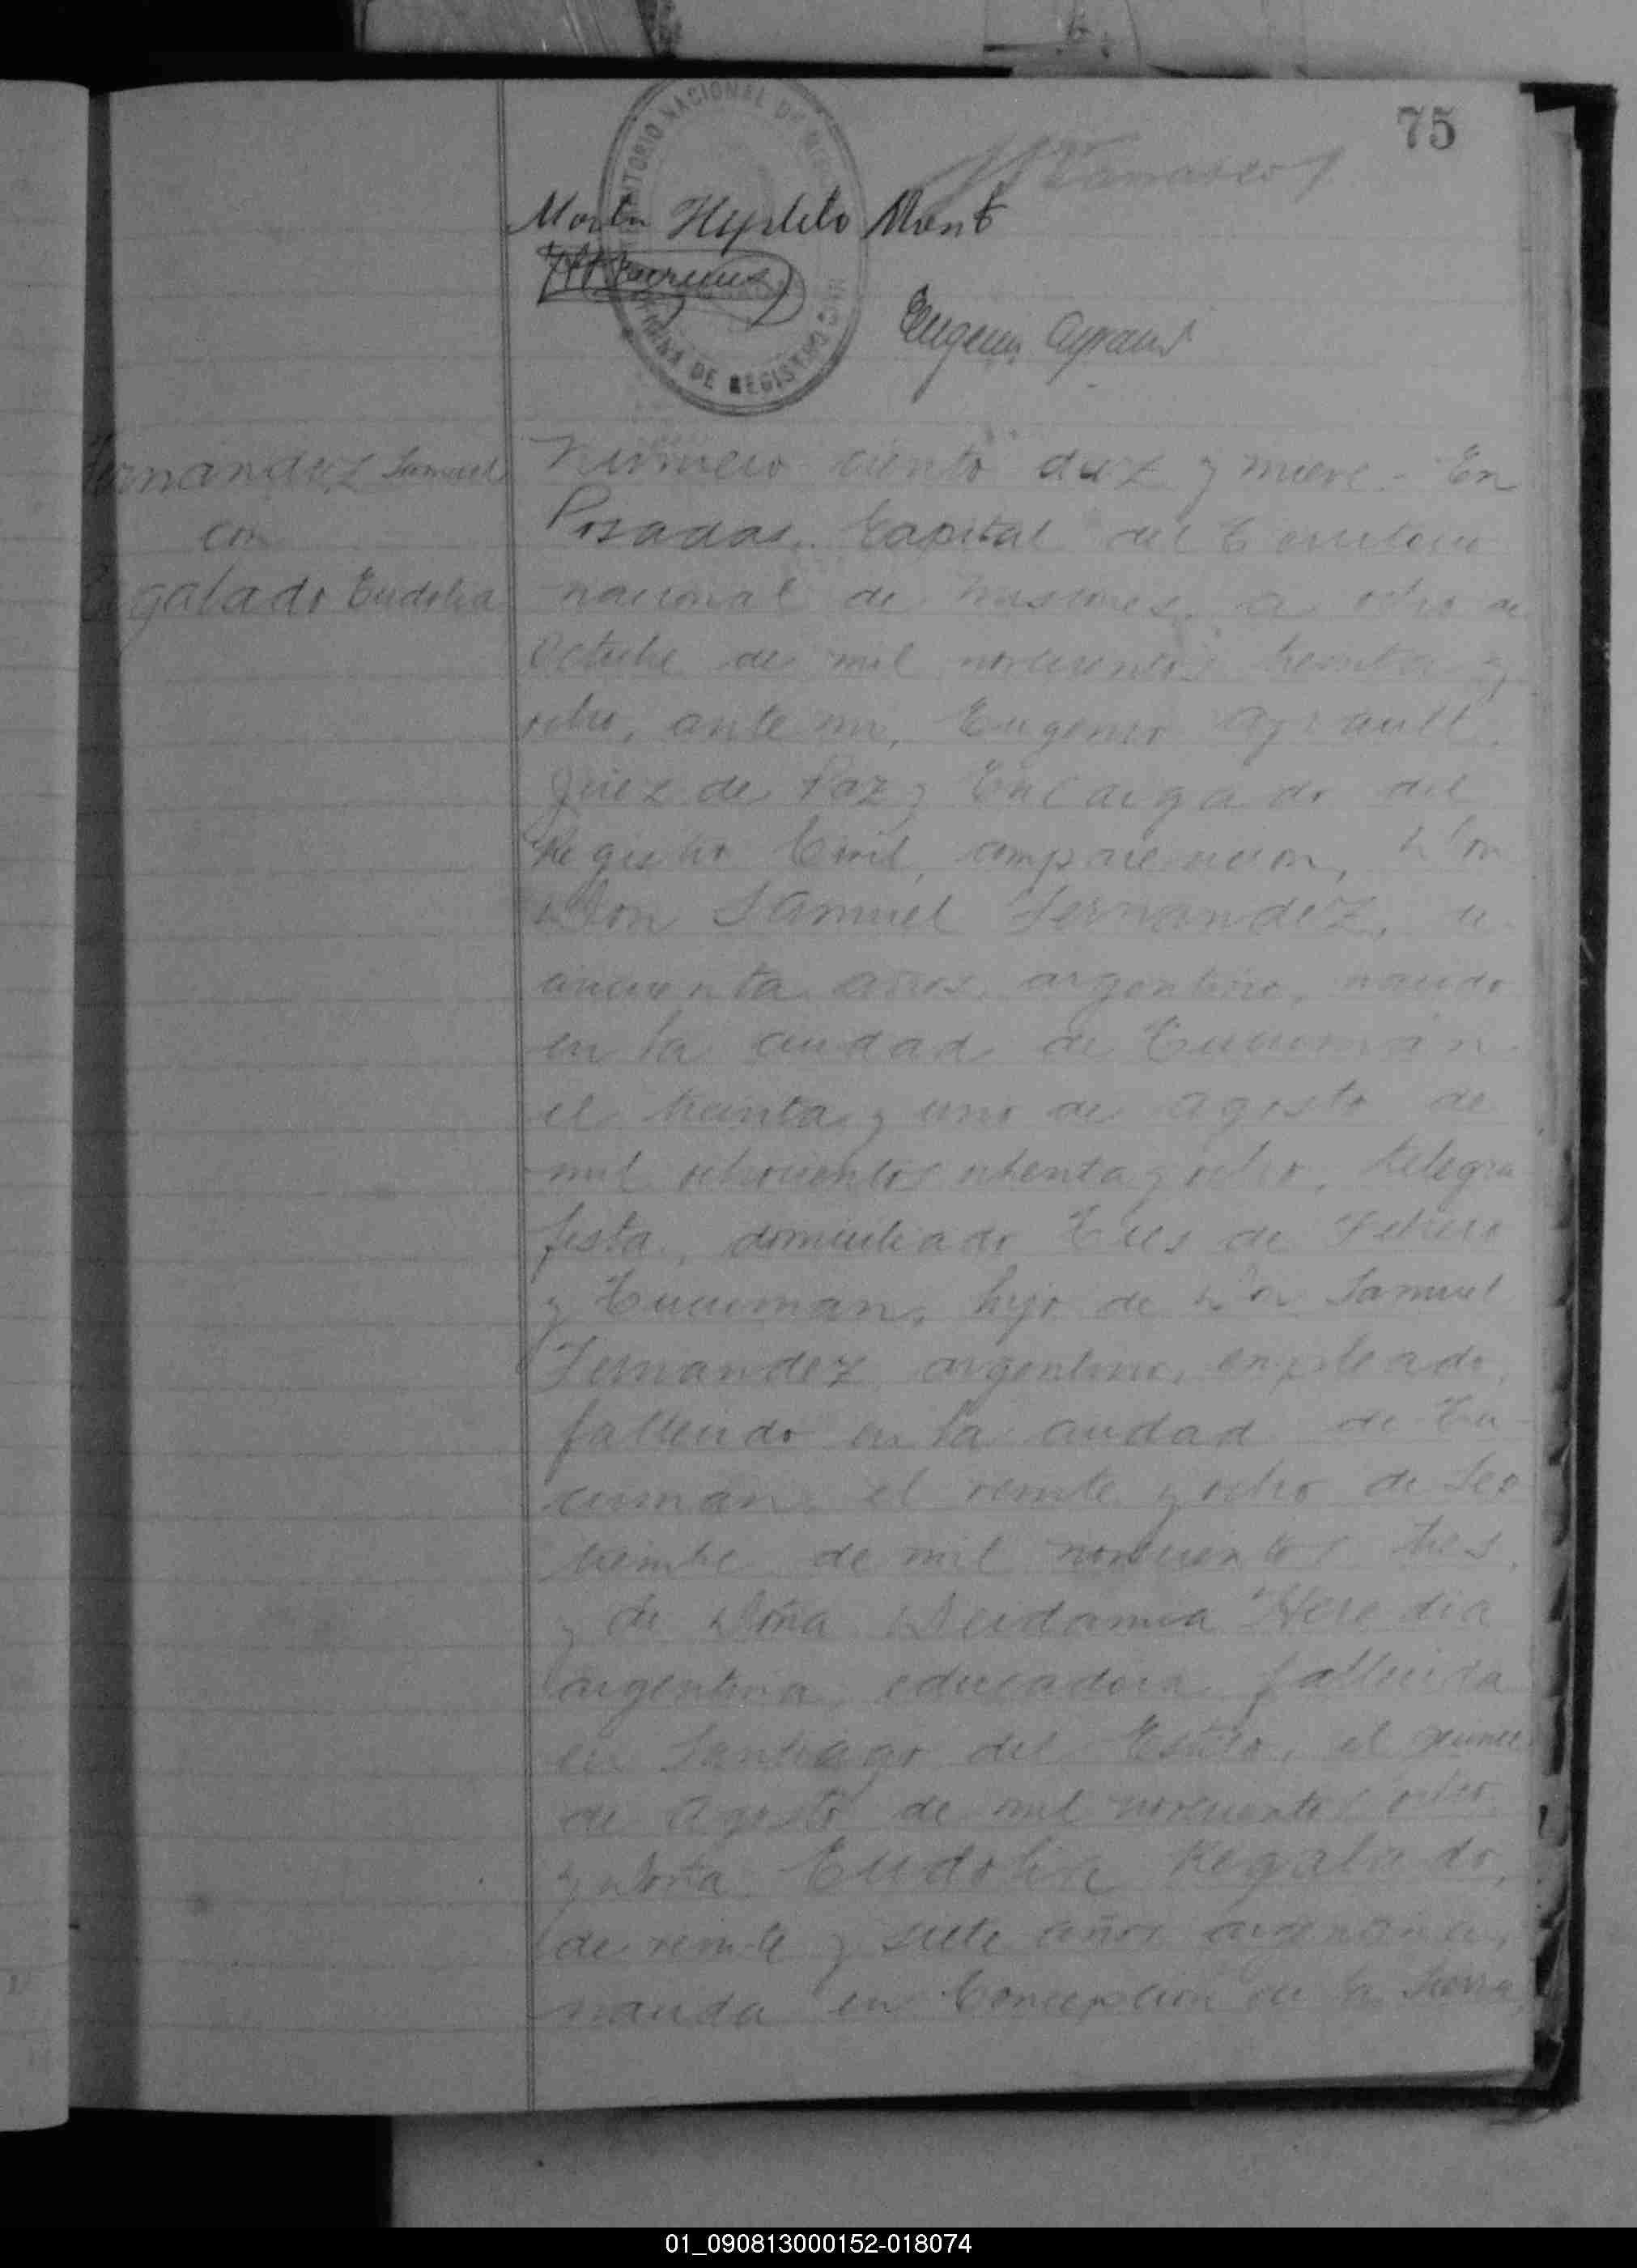 75
TERRITORIO NACIONAL DE MISIONES
OFICINA DE REGISTRO CIVIL
Eugenio Ayrault
Fernandez Samuel
con
Regalado Eudolia
Número ciento diez y nueve.- En
Posadas, Capital del Territorio
nacional de Misiones, a ocho de
Octubre de mil novecientos treinta y
ocho, ante mi, Eugenio Ayrault,
Juez de Paz y Encargado del
Registro Civil, comparecieron, Don
Don Samuel Fernandez, de
cincuenta años, argentino, nacido
en la ciudad de Tucumán
el treinta y uno de agosto de
mil ochocientos ochenta y ocho, telegra
fista, domiciliado Tres de Febrero
y Tucuman, hijo de Don Samuel
Fernandez argentino, empleado,
fallecido en la ciudad de Tu-
cuman, el veinte y ocho de Sep
tiembre de mil novecientos tres,
y de Doña Deidamia Heredia
argentina, educadora, fallecida
en Santiago del Estero, el quince
de Agosto de mil novecientos ocho,
y Doña Eudolia Regalado,
de veinte y siete años argentina,
nacida en Concepcion de la Sierra,